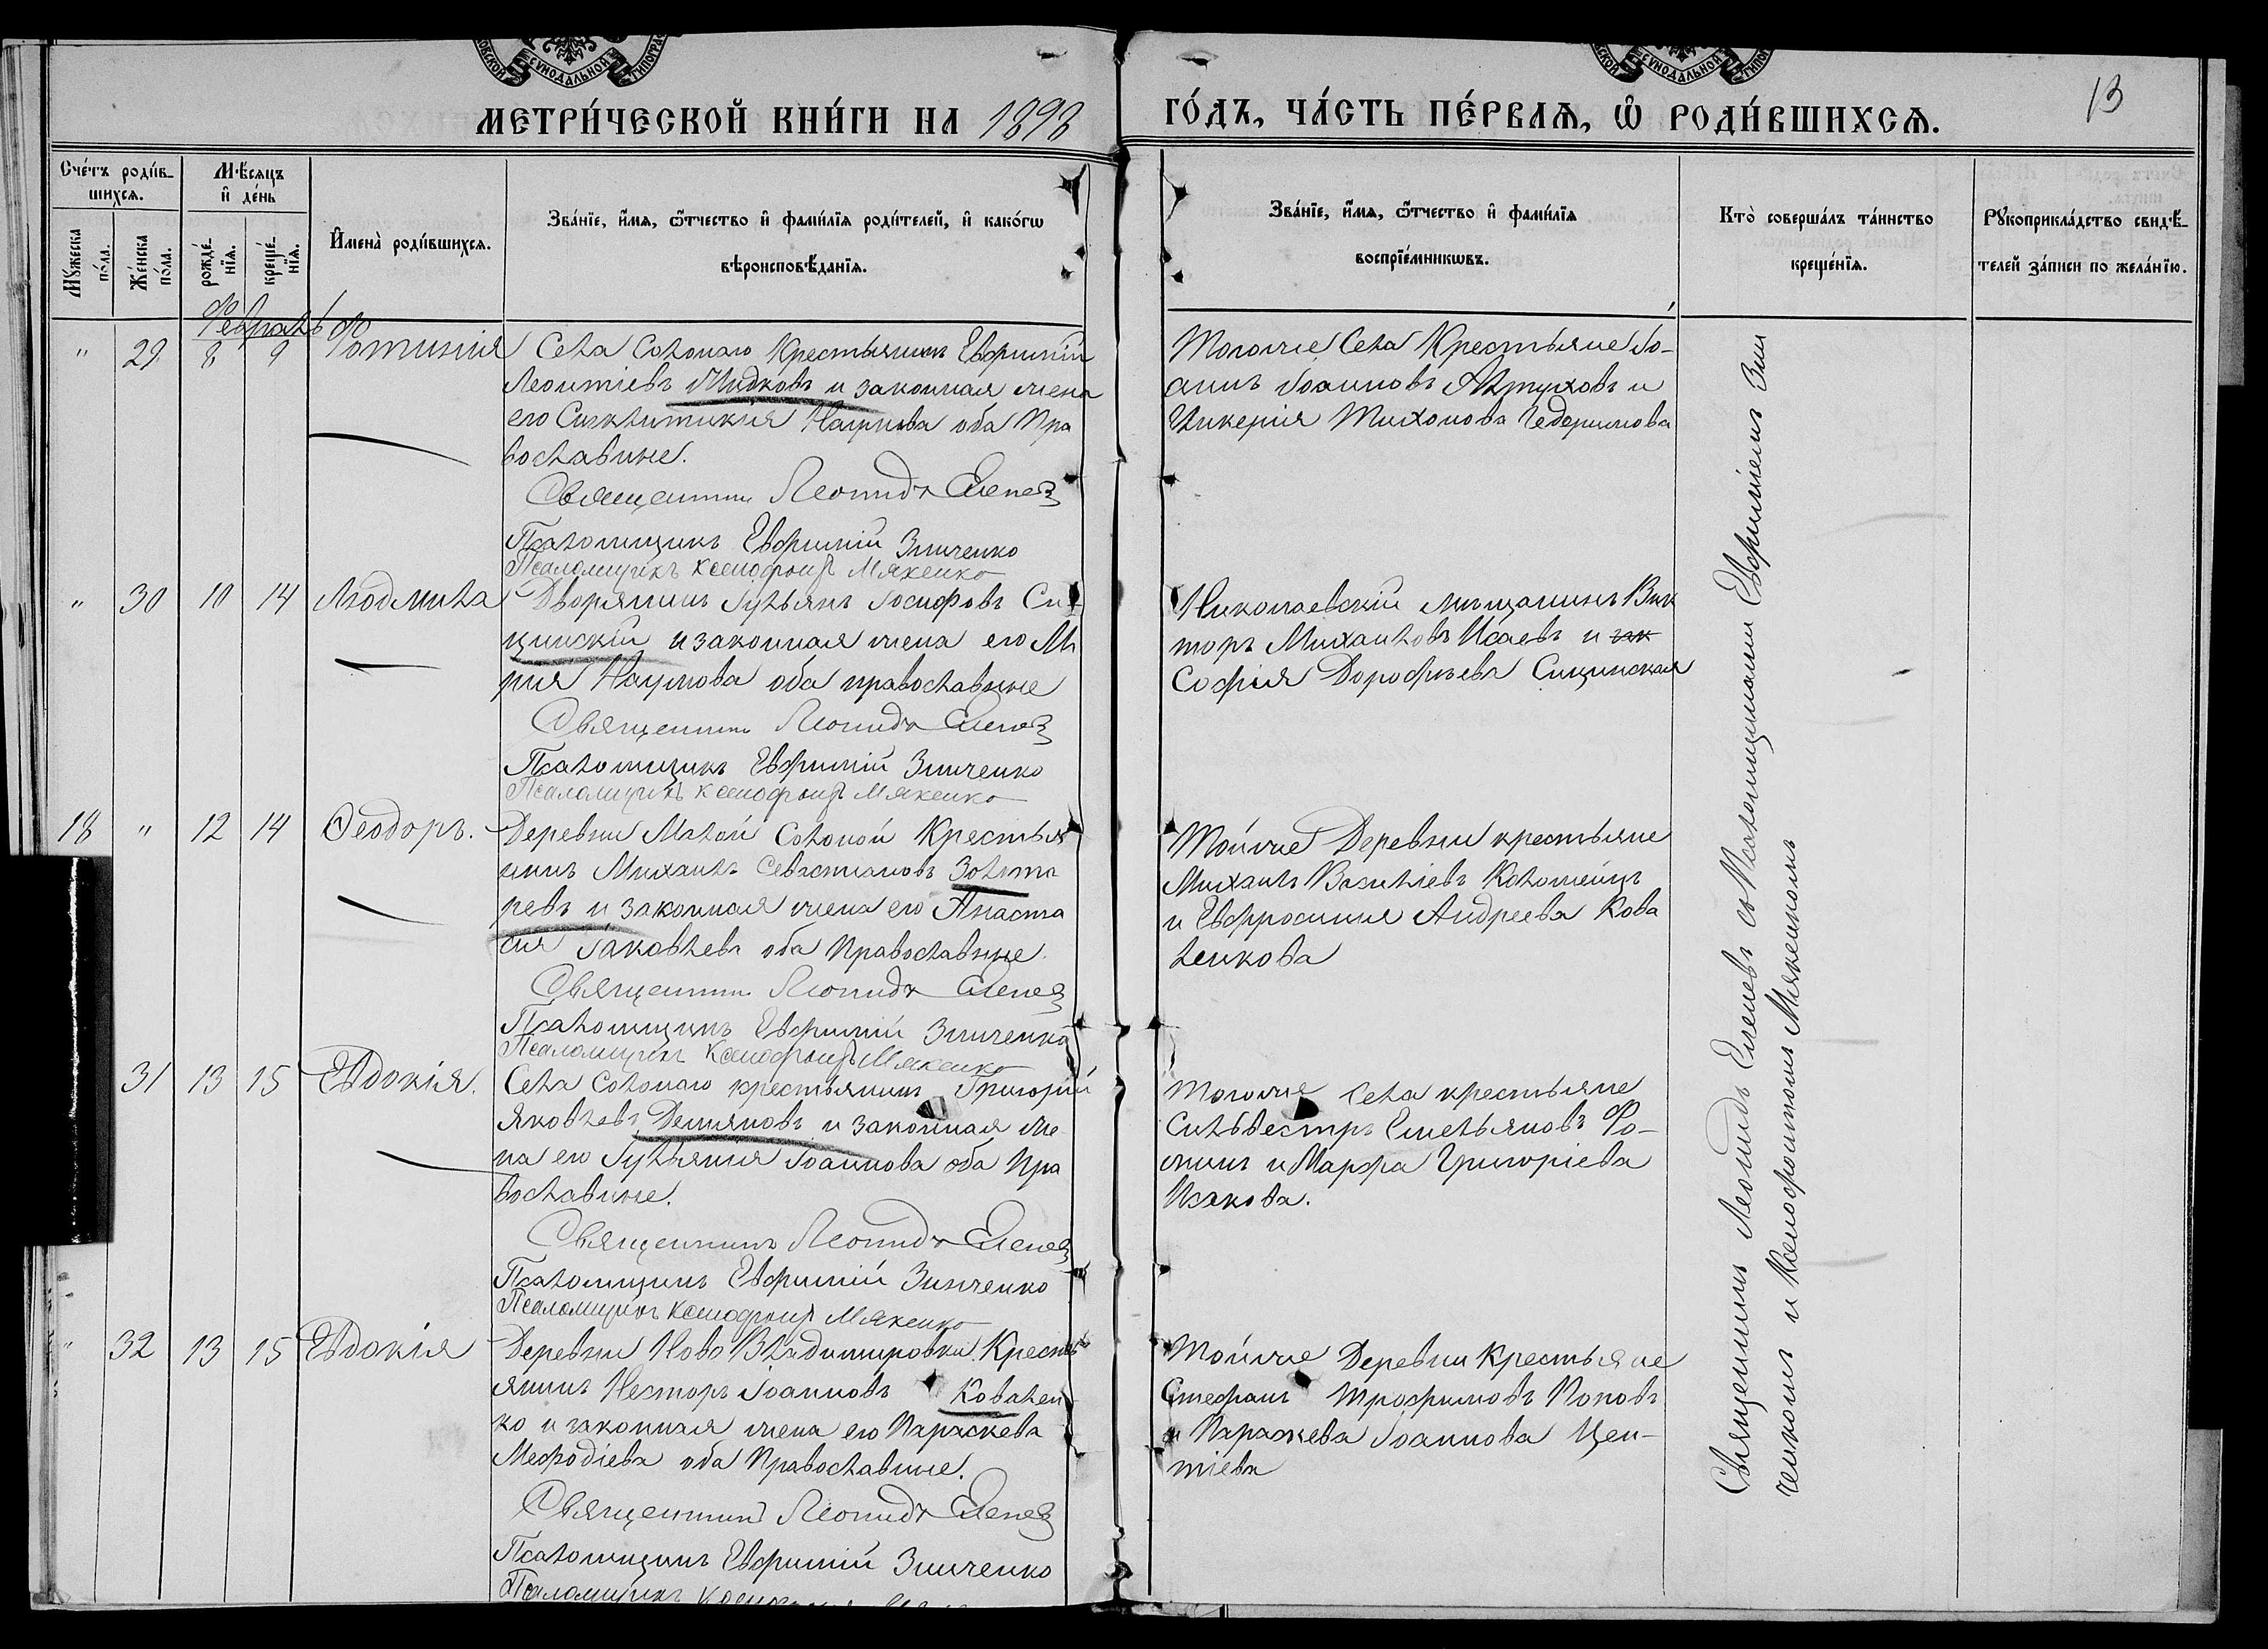 МЕТРИ́ЧЕСКОЙ КНИ́ГИ НА 1898
ГО́ДЪ, ЧА́СТЬ ПЕ́РВАѦ, Ѽ РОДИ́ВШИХСѦ.
13
Сче́тъ роди́в-
шихсѧ.
Мѣ́сѧцъ
и҆ де́нь
Мꙋ́жеска
по́ла.
Же́нска
по́ла.
рожде́-
нїѧ.
креще́-
нїѧ.
И҆мена̀ роди́вшихсѧ.
Зва́нїе, и҆́мѧ, ѻ҆́тчество и҆ фами́лїѧ роди́телей, и҆ како́гѡ
вѣроисповѣ́данїѧ.
Зва́нїе, и҆́мѧ, ѻ҆́тчество и҆ фами́лїѧ
воспрїе́мникѡвъ.
Кто̀ соверша́лъ та́инство
креще́нїѧ.
Рꙋкоприкла́дство свидѣ́-
телей за́писи по жела́нїю.
Февраль
" 29 8 9 Фотинія
Села Солонаго Крестьянинъ Евфимій
Леонтіевъ Жидковъ и законная жена
его Синклитикія Наумова оба Пра
вославные.
Священникъ Леонидъ Еленев
Псаломщикъ Евфимій Зинченко
Псаломщикъ Ксенофонтъ Мякенко
Тогоже Села Крестьяне Іо-
аннъ Іоанновъ и
Гликерія Тихонова
" 30 10 14 Людмила
Дворянинъ Іуліанъ Іосифовъ Си-
цинскій и законная жена его Ма
рия Наумова оба православные
Священникъ Леонидъ Еленев
Псаломщикъ Евфимій Зинченко
Псаломщикъ Ксенофонтъ Мякенко
Николаевскій мѣщанинъ Вик
торъ Михаиловъ Исаевъ и зак
Софія Дорофѣева Сицинская
18 " 12 14 Ѳеодоръ.
Деревни Малой Солоной Крестья
нинъ Михаилъ Севастіановъ Золота
ревъ и законная жена его Анаста
сия Іаковлева оба Православные.
Священникъ Леонидъ Еленев
Псаломщикъ Евфимій Зинченко
Псаломщикъ Ксенофонтъ Мякенко
Тойже Деревни крестьяне
Михаилъ Василіевъ Коломѣйцъ
и Евфросинія Андреева Кова
ленкова
31 13 15 Евдокія.
Села Солонаго крестьянинъ Григорій
Яковлевъ Демяновъ и законная же
на его Іуліанія Іоаннова оба Пра
вославные.
Священникъ Леонидъ Еленев
Псаломщикъ Евфимій Зинченко
Псаломщикъ Ксенофонтъ Мякенко
Тогоже Села крестьяне
Сильвестръ Емельяновъ Фо-
минъ и Марфа Григоріева
Исакова.
" 32 13 15 Евдокія
Деревни Ново Владимировки Кресть
янинъ Несторъ Іоанновъ Ковален
ко и законная жена его Параскева
Мефодіева оба Православные.
Священникъ Леонидъ Еленев
Псаломщикъ Евфимій Зинченко
Псаломщикъ
Тойже Деревни Крестьяне
Стефанъ Трофимовъ Поповъ
и Параскева Іоаннова
Священникъ Леонидъ Еленевъ съ Псаломщиками Евфиміемъ Зин
ченкомъ и Ксенофонтомъ Мякенкомъ